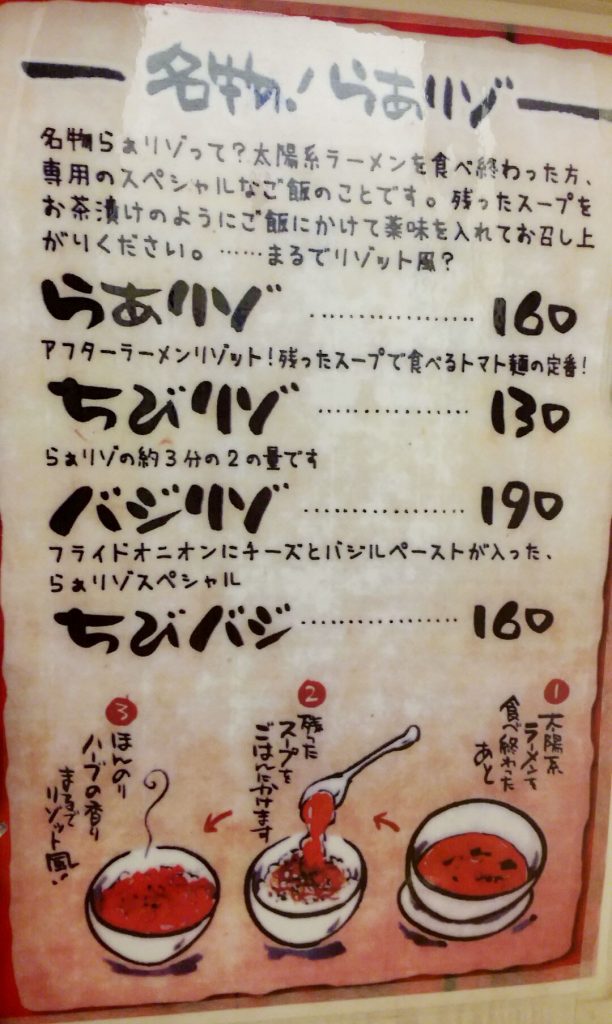 名物！らぁリゾ
名物らぁリゾって？太陽系ラーメンを食べ終わった方、
専用のスペシャルなご飯のことです。残ったスープを
お茶漬けのようにご飯にかけて薬味を入れてお召し上
がりください。……まるでリゾット風？
らぁリゾ ………………… 160
アフターラーメンリゾット！残ったスープで食べるトマト麺の定番！
ちびリゾ ………………… 130
らぁリゾの約3分の2の量です
バジリゾ ………………… 190
フライドオニオンにチーズとバジルペーストが入った、
らぁリゾスペシャル
ちびバジ ………………… 160
1
太陽系
ラーメンを
食べ終わった
あと
2
残った
スープを
ごはんにかけます
3
ほんのり
ハーブの香り
まるで
リゾット風！